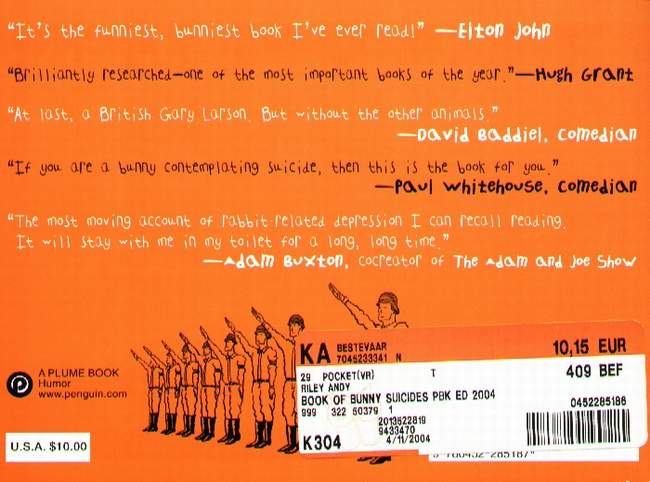 “It's the funniest, bunniest book I've ever read!” —Elton John
“Brilliantly researched—one of the most important books of the year.”—Hugh Grant
“At last, a British Gary Larson. But without the other animals.”
—David Baddiel, comedian
“If you are a bunny contemplating suicide, then this is the book for you.”
—Paul Whitehouse, comedian
“The most moving account of rabbit-related depression I can recall reading.
It will stay with me in my toilet for a long, long time.”
—Adam Buxton, cocreator of The Adam and Joe Show
A PLUME BOOK
Humor
www.penguin.com
U.S.A. $10.00
KA BESTEVAAR 10,15 EUR
7045233341 N
409 BEF
29 POCKET(VR) T
RILEY ANDY
BOOK OF BUNNY SUICIDES PBK ED 2004
0452285186
999 322 50379 1
2013522819
9433470
K304 4/11/2004